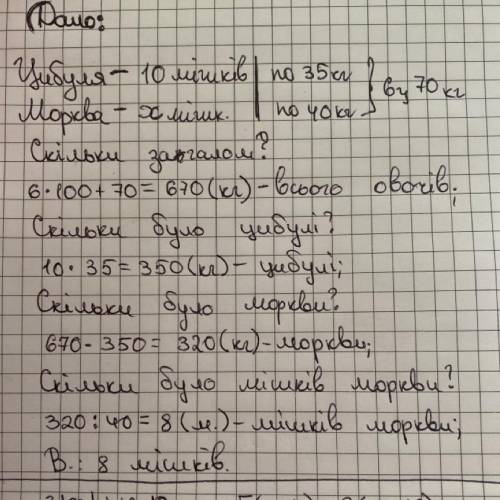 Дано:
Цибуля - 10 мішків | по 35 кг } 6ц 70 кг
Морква - x мішк. | по 40 кг
Скільки загалом?
6·100+70=670(кг)-всього овочів;
Скільки було цибулі?
10·35=350(кг)-цибулі;
Скільки було моркви?
670-350=320(кг)-моркви;
Скільки було мішків моркви?
320:40=8(м.)-мішків моркви;
В.: 8 мішків.